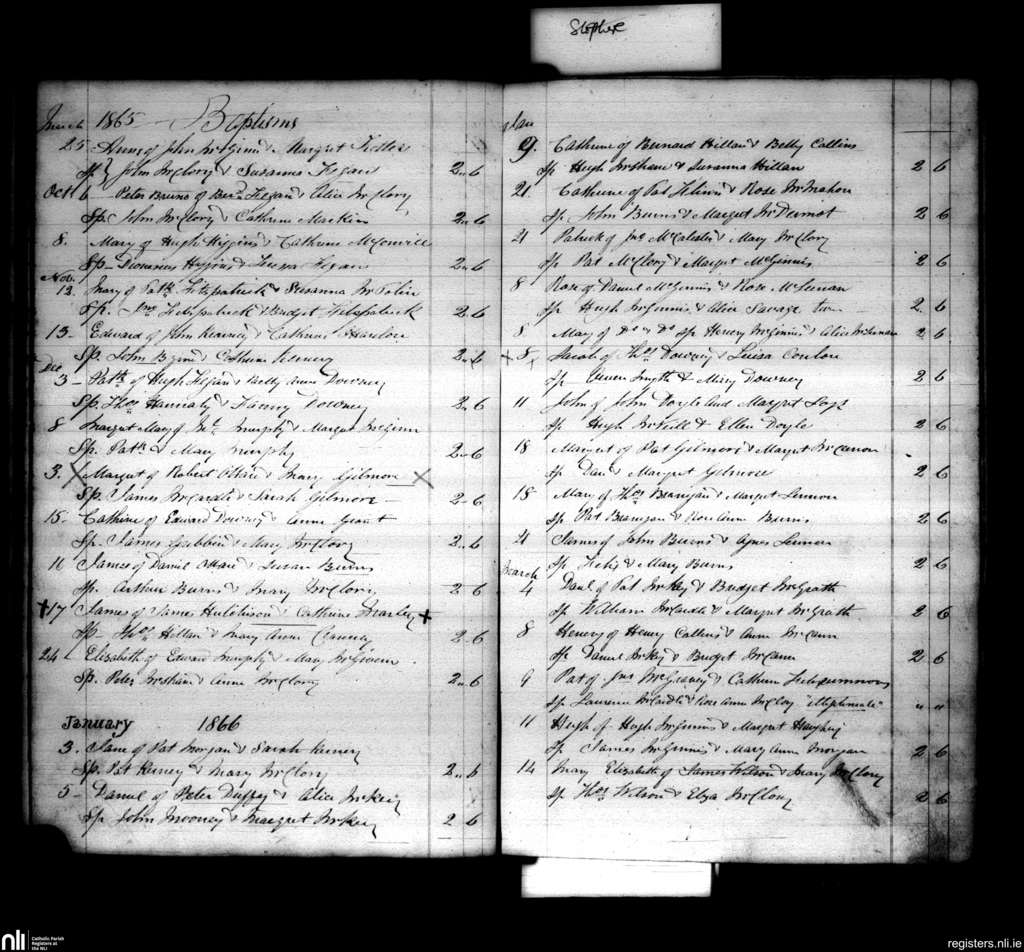 1865 Baptisms
25 Anne of John McGinn & Margret
Sp John McClory & Susanna Fegan 2 " 6
Oct 6 - Peter Bruno of Bern. Fegan & Alice McClory
Sp. John McClory & Cathrine Mackin 2 " 6
8. Mary of Hugh Higgins & Cathrine McConvill
Sp - Dionisius Higgins & Teresa Fegan 2 " 6
Nov. 12. Mary of Patk Fitzpatrick & Susanna
Sp. Jno Fitzpatrick & Bridget Fitzpatrick 2 " 6
13 - Edward of John Kearney & Cathrine Hanlon
Sp. John Byrne & Cathrine 2 " 6
Dec 3 - Patk of Hugh Fegan & Betty Anne Downey
Sp. Thos Hanraty & Fanny Downey 2 " 6
8 Margret Mary of Murphy & Margret McGinn
Sp. Patk & Mary Murphy 2 " 6
3. Margret of Robert OHare & Mary Gilmore
Sp. James McCardle & Sarah Gilmore - 2 - 6
15 - Cathrine of Edward Downey & Anne Grant
Sp. James Gribbin & Mary McClory 2 " 6
11 James of Daniel OHare & Susan Burns
Sp. Arthur Burns & Mary McClory 2 - 6
+17 James of James Hutchison & Cathrine +
Sp - Thos Hillan & Mary Anne 2 - 6
24 - Elizabeth of Edward Murphy & Mary McGivern
Sp. Peter McShane & Anne McClory 2 " 6
January 1866
3. Jane of Pat Morgan & Sarah
Sp. Pat & Mary McClory 2 " 6
5 - Daniel of Peter Duffey & Alice McKey
Sp John Mooney & Margret McKey 2 6
Stephen
Jan
9. Cathrine of Bernard Hillan & Betty Collins
Sp Hugh McShane & Susanna Hillan 2 6
21. Cathrine of Pat & Rose McMahon
Sp John Burns & Margret McDermot 2 6
21 Patrick of Jno McCalister & Mary McClory
Sp Pat McClory & Margret McGinnis 2 6
8 Rose of Daniel McGinnis & Rose
Sp Hugh McGinnis & Alice Savage 2. 6
8 Mary of Do & Do Sp Henery McGinnis & Alice 2 6
+ 8 + Jacob of Thos Downey & Luisa Conlon
Sp Owen Smyth & Mary Downey 2 6
11 John of John Doyle and Margret
Sp Hugh McNeill & Ellen Doyle 2 6
18 Margret of Pat Gilmore & Margret
Sp Dan & Margret Gilmore 2 6
18 Mary of Thos Branigan & Margret Lennon
Sp Pat Branigan & Rose Ann Burns 2 6
21 James of John Burns & Agnes Lennon
Sp Felix & Mary Burns 2 6
March 4 Danl of Pat McKey & Bridget McGrath
Sp William McCardle & Margret McGrath 2 6
8 Henery of Henry Collins & Ann McCann
Sp Daniel McKey & Bridget McCann 2 6
9 Pat of Jno & Cathrine Fitzsimmons
Sp Laurence McCardle & Rose Anne McClory " "
11 Hugh of Hugh McGinnis & Margret Haughey
Sp James McGinnis & Mary Anne Morgan 2 6
14 Mary Elizabeth of James Wilson & Mary McClory
Sp Thos Wilson & Eliza McClory 2 6
nli Catholic Parish Registers at the NLI
registers.nli.ie